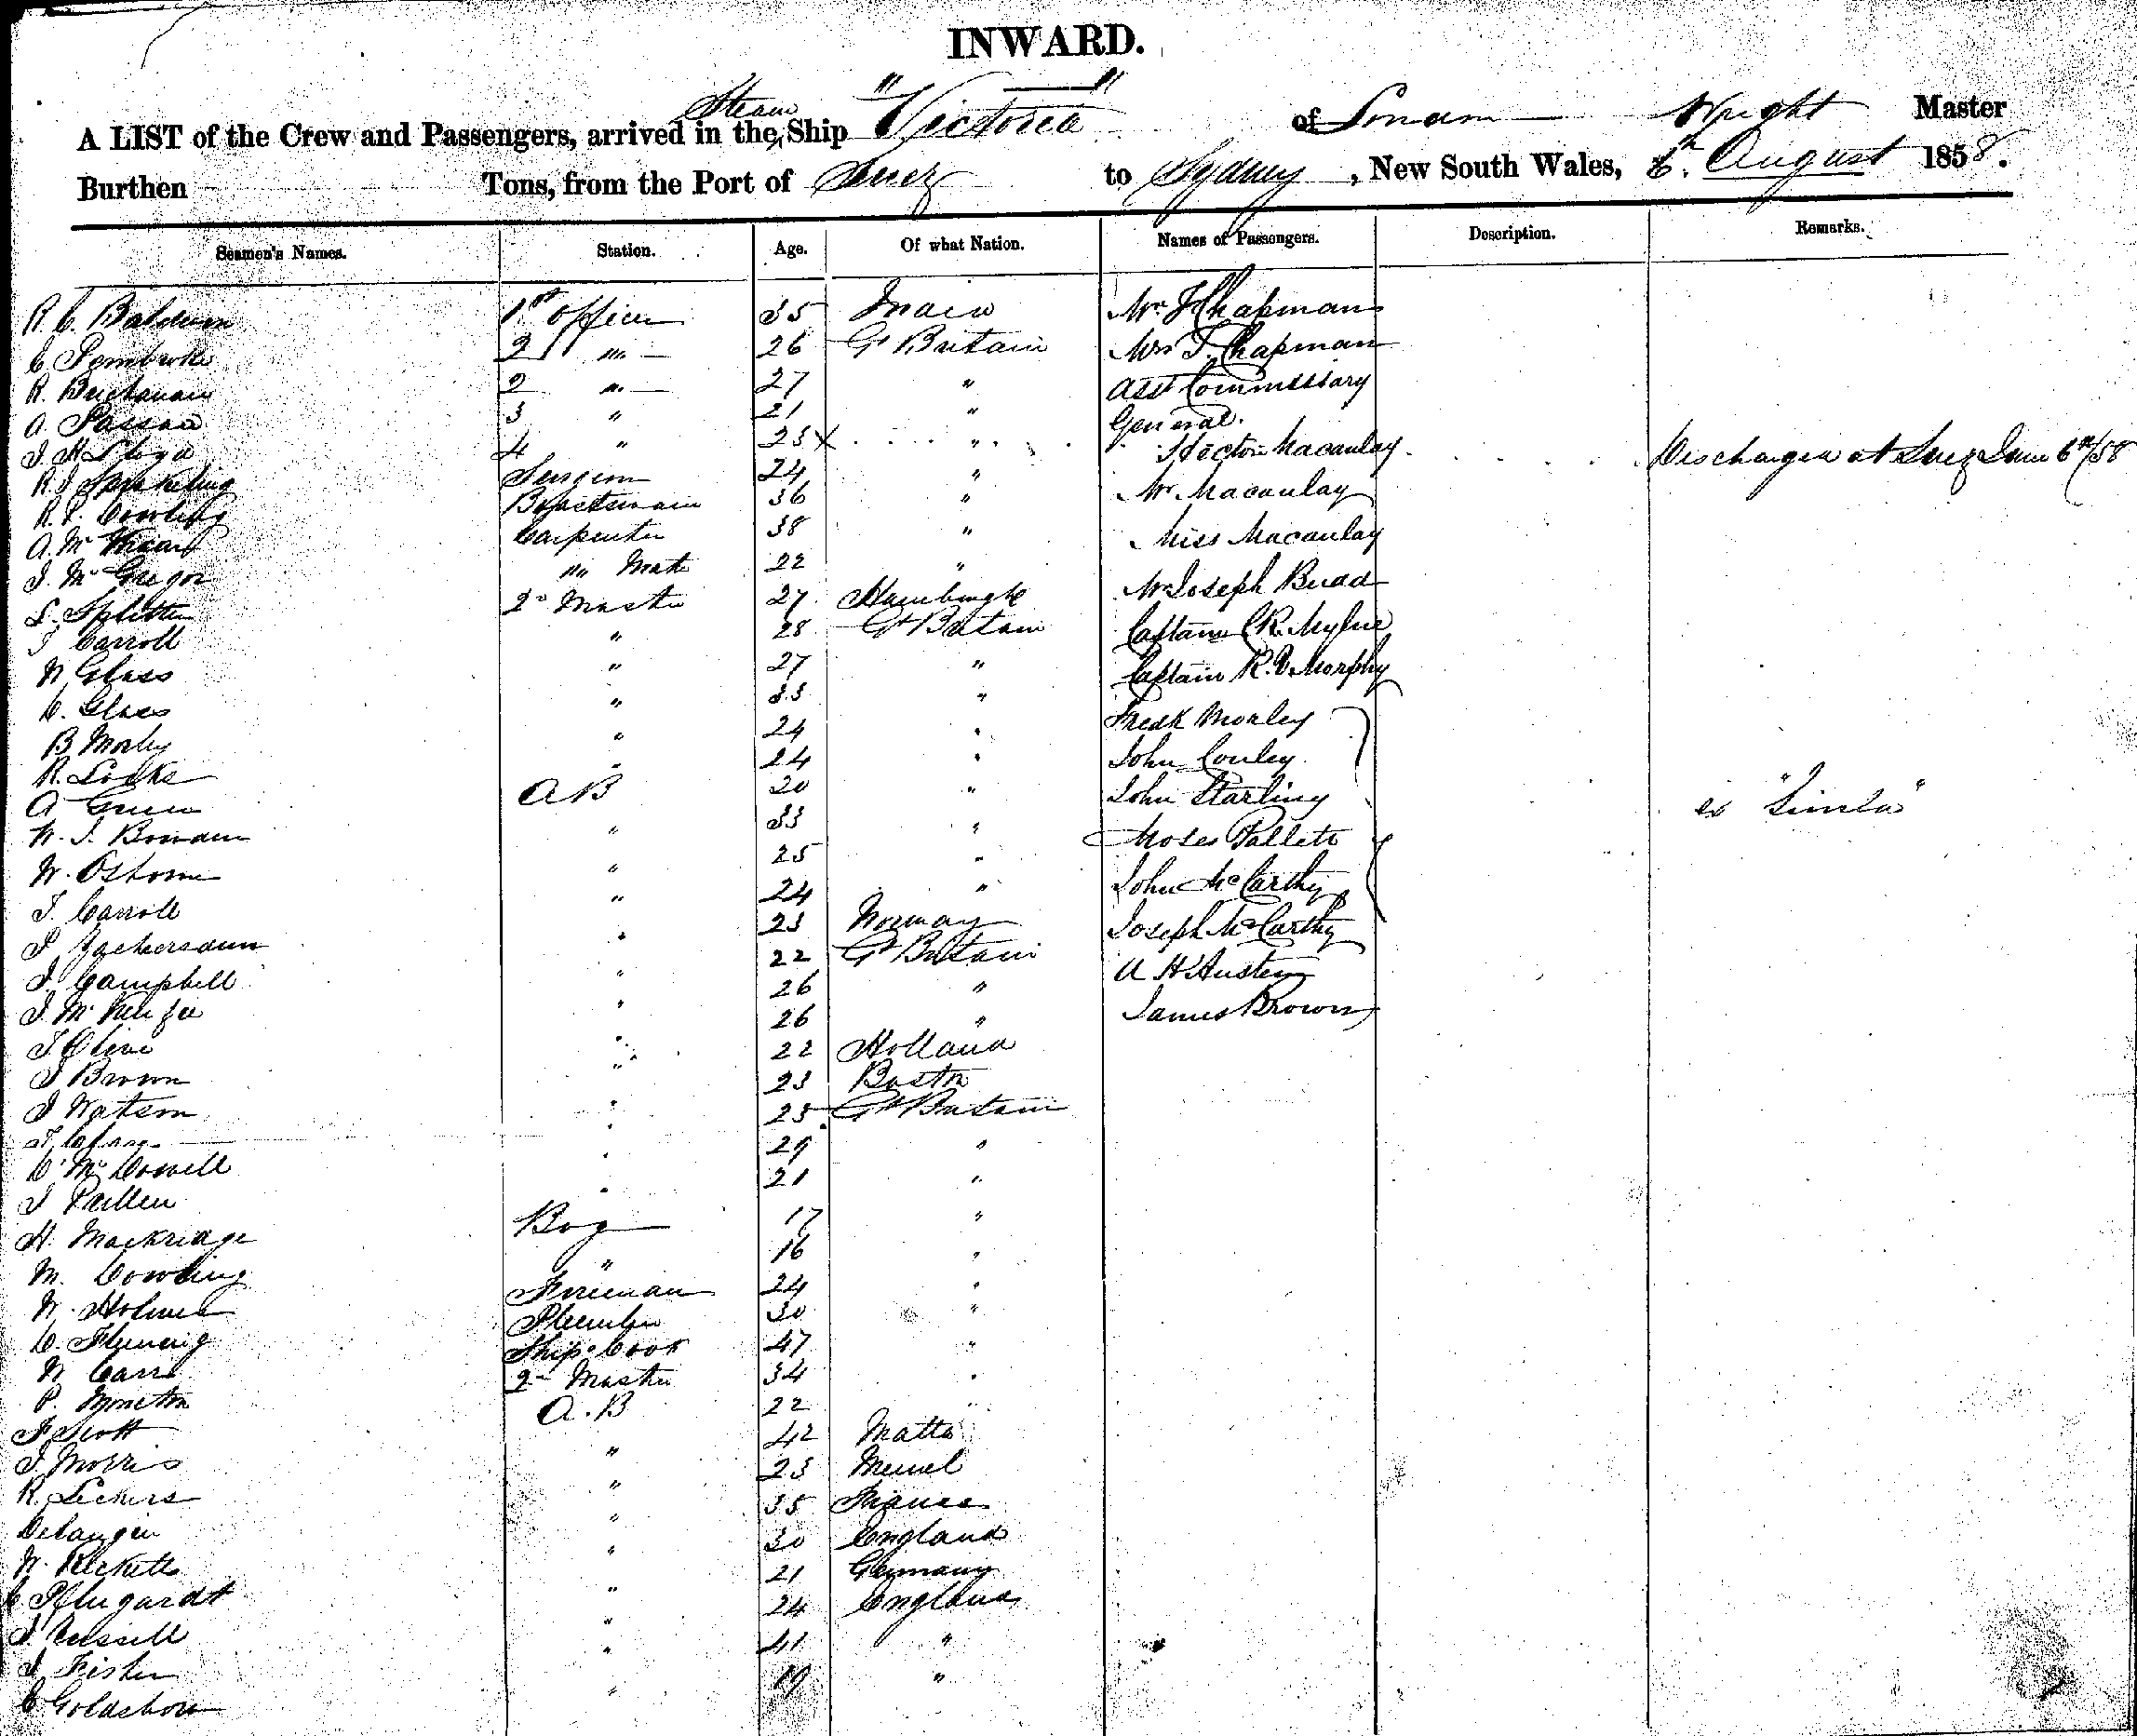 INWARD.
A LIST of the Crew and Passengers, arrived in the Steam Ship "Victoria" of London Wright Master
Burthen Tons, from the Port of Suez to Sydney, New South Wales, 6th August 1858.
Seamen's Names. Station. Age. Of what Nation. Names of Passengers. Description. Remarks.
R. C. Baldwin 1st Officer 35 Mr. Chapman
C Pembroke 2 " 26 Gt Britain Mrs T. Chapman
R. Buchanan 2 " 27 " Asst Commissary
A. 3 " 21 " General.
J. H Lloyd 4 " 25 X " Hector Macaulay Discharged at Suez June 6th/58
R. J. Surgeon 24 " Mr. Macaulay
R. P. Cowling Boatswain 36 " Miss Macaulay
A. Mc Carpenter 38 "
J. Mc Gregor " Mate 22 " Mr Joseph Budd
L. Qr Master 27 Hamburgh Captain C. R. Mylne
J Carroll " 28 Gt Britain Captain R. Morphy
W Glass " 27 "
C. Glass " 33 " Fredk Morley
B Morley " 24 " John Conley
R. Locke " 24 " John Starling
A Green AB 20 " Moses Pallett ex "Simla"
W. J. Bowden " 33 " John McCarthy
W. Osborn " 25 " Joseph McCarthy
J. Carroll " 24 " A H Austen
P. " 23 Norway James Brown
J. Campbell " 22 Gt Britain
J. Mc " 26 "
J Clive " 26 "
J Brown " 22 Holland
J Watson " 23 Boston
" 25 Gt Britain
C. Mc Dowell " 29 "
J Pullen " 21 "
H. Mackridge Boy 17 "
M. Cowling " 16 "
W. Holmes Fireman 24 "
C. Fleming Plumber 30 "
W Carr Ship's Cook 47 "
P. Moreton Qr Master 34 "
J Scott A.B 22 "
J. Morris " 42 Malta
R. " 23 Memel
" 35 France
W. Ricketts " 30 England
C Pflugardt " 21 Germany
J. Russell " 24 England
J. Fisher " 41 "
C " 19 "